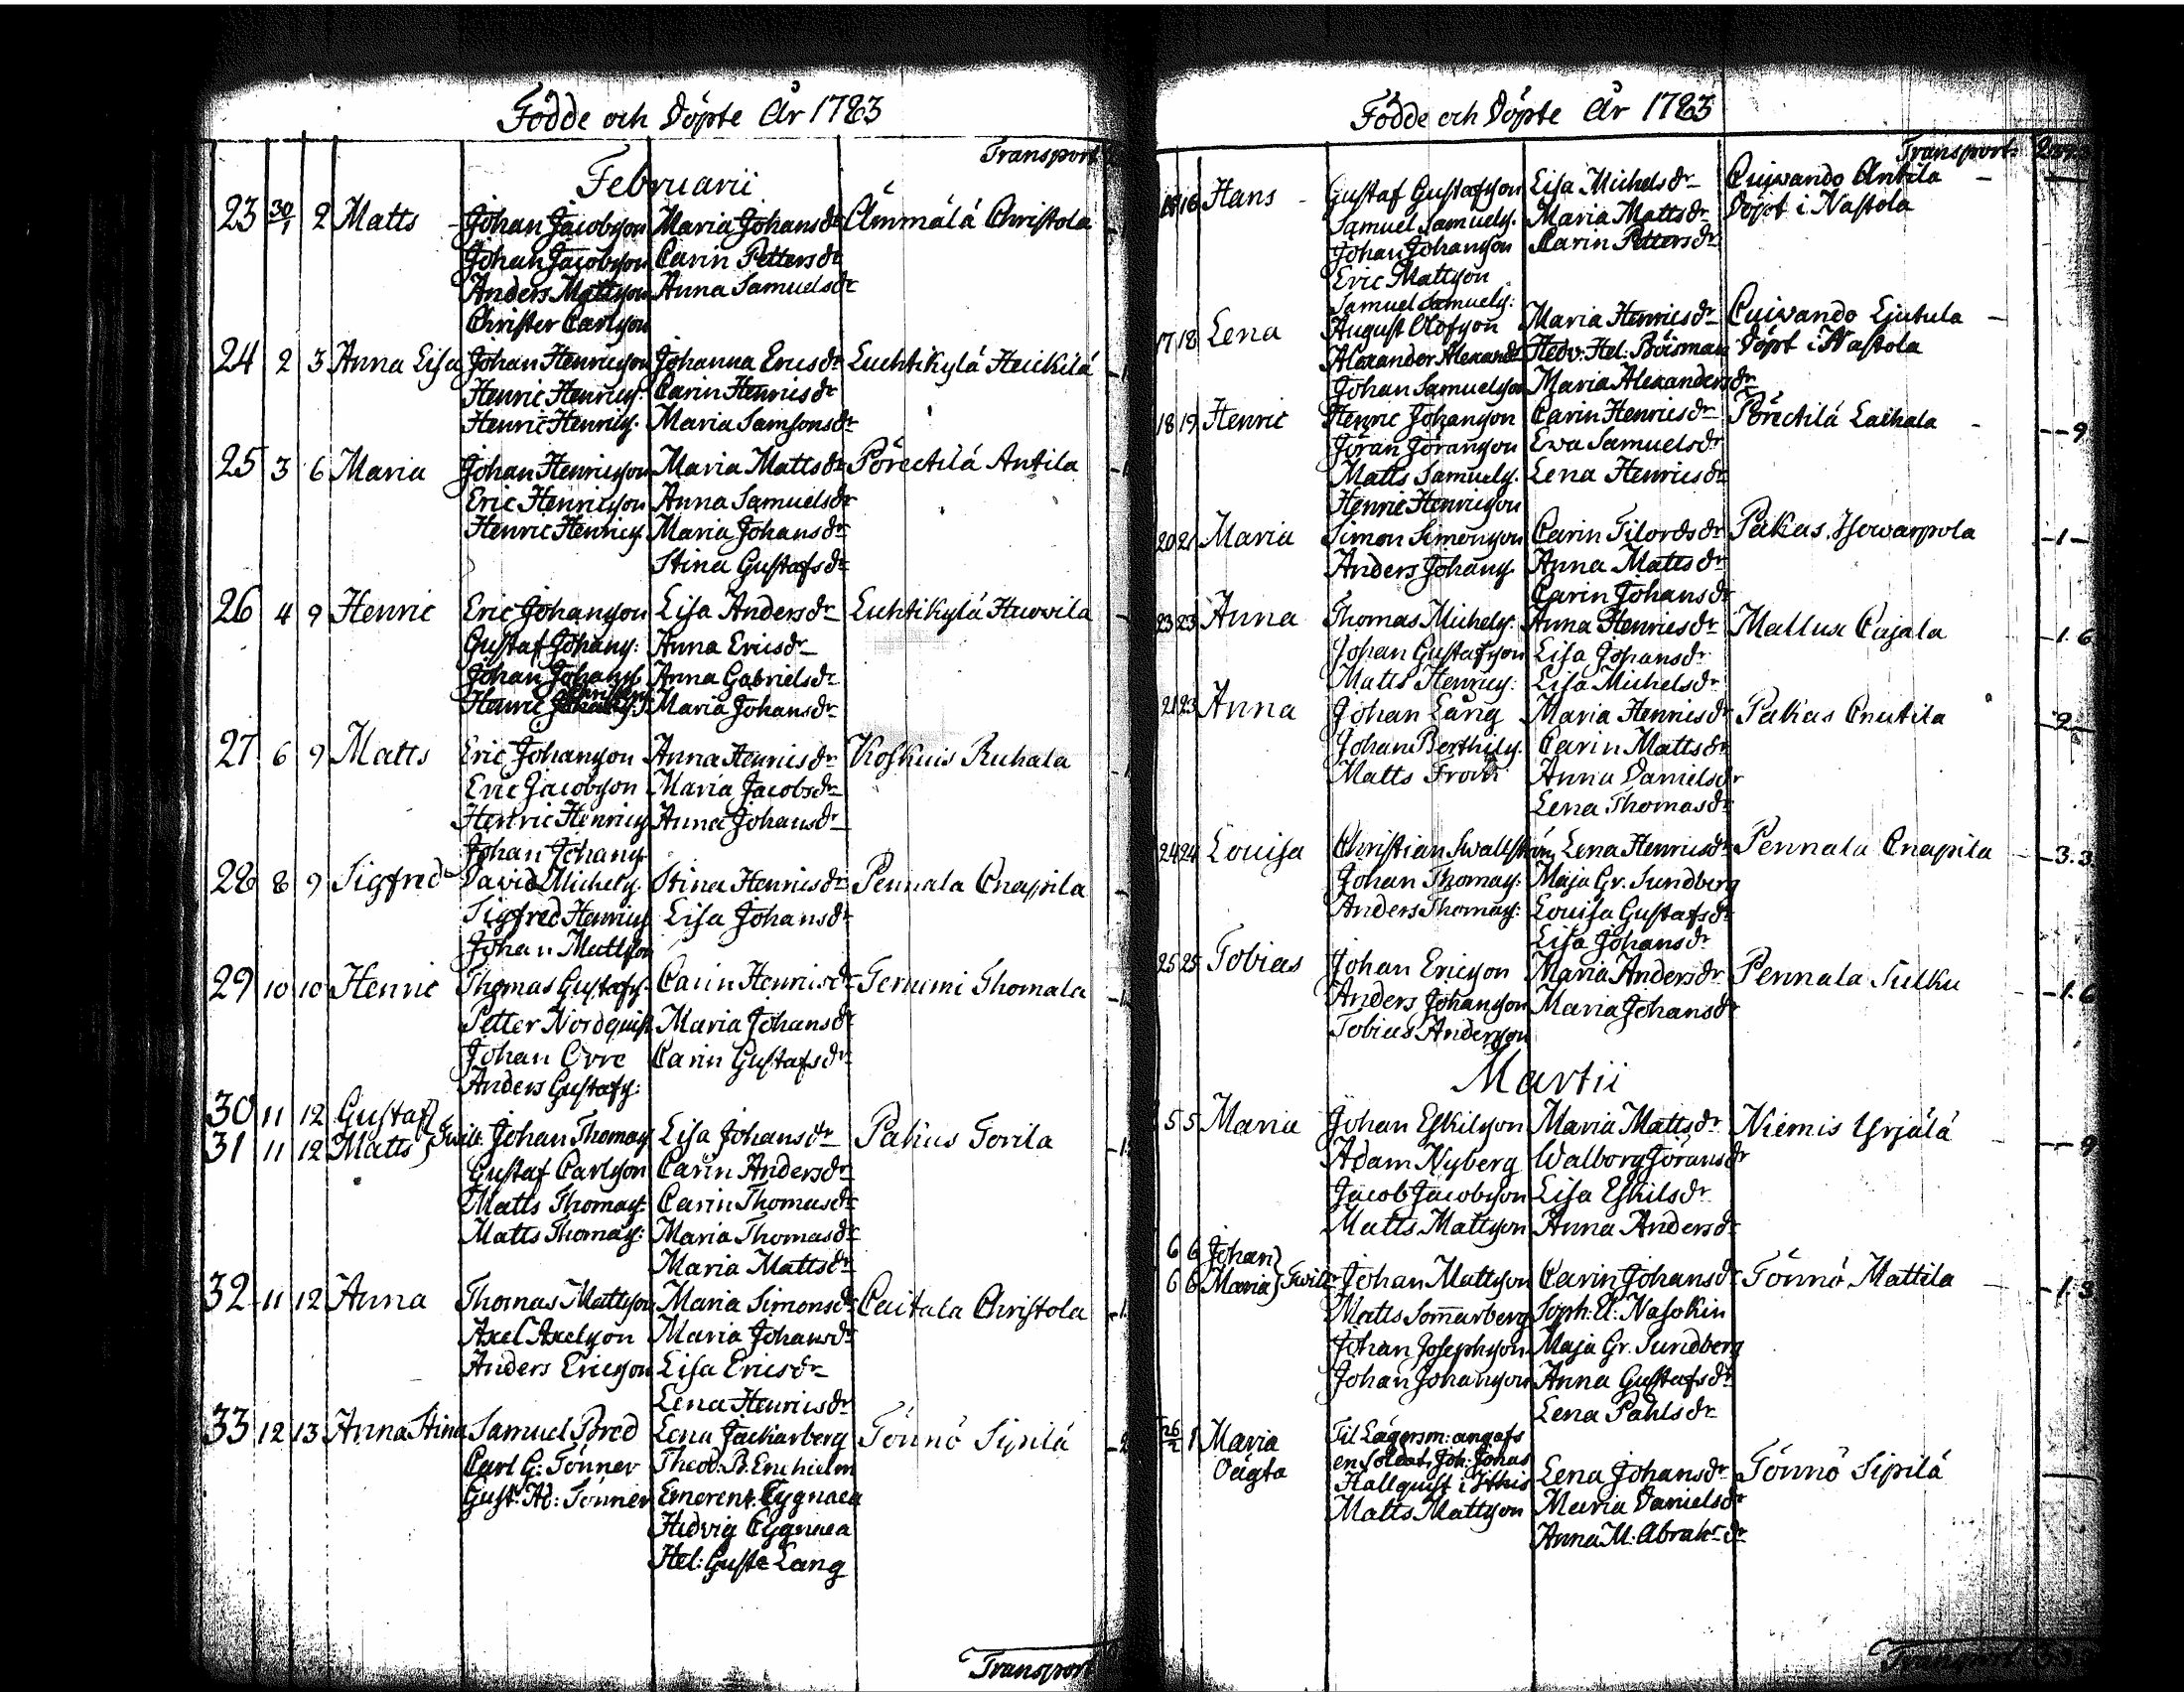 Födde och Döpte År 1783
Transport
Februarii
23 30/1 2 Matts Johan Jacobsson Maria Johansdr Ämmälä Christola
Johan Jacobsson Carin Pettersdr
Anders Mattsson Anna Samuelsdr
Christer Carlsson
24 2 3 Anna Lisa Johan Henricsson Johanna Ericsdr Luhtikylä Heickilä
Henric Henrics: Carin Henricsdr
Henric Henrics. Maria Samsonsdr
25 3 6 Maria Johan Henricsson Maria Mattsdr Pörectilä Antila
Eric Henricsson Anna Samuelsdr
Henric Henrics. Maria Johansdr
Stina Gustafsdr
26 4 9 Henric Eric Johansson Lisa Andersdr Luhtikylä Huovila
Gustaf Johans: Anna Ericsdr
Johan Johans. Anna Gabrielsdr
Henric Christers. Maria Johansdr
27 6 9 Matts Eric Johansson Anna Henricsdr Koskuis Ruhala
Eric Jacobsson Maria Jacobsdr
Henric Henrics Anna Johansdr
Johan Johans
28 8 9 Sigfred David Michels. Stina Henricsdr Pennala Cnapila
Sigfred Henrics Lisa Johansdr
Johan Mattsson
29 10 10 Henric Thomas Gustafs. Carin Henricsdr Terrumi Thomala
Petter Nordquist Maria Johansdr
Johan Orre Carin Gustafsdr
Anders Gustafs:
30 11 12 Gustaf
31 11 12 Matts } Twill. Johan Thomas. Lisa Johansdr Pakas Tovila
Gustaf Carlsson Carin Andersdr
Matts Thomas: Carin Thomasdr
Matts Thomas: Maria Thomasdr
Maria Mattsdr
32 11 12 Anna Thomas Mattsson Maria Simonsdr Caitala Christola
Axel Axelsson Maria Johansdr
Anders Ericsson Lisa Ericsdr
Lena Henricsdr
33 12 13 Anna Stina Samuel Bred Lena Jackarberg Tönnö Sipilä
Carl G: Tönner Theod: B. Enehielm
Gust: Ad: Tönner Emerent. Cygnaea
Hedvig Cygnaea
Hel: Gust: Lang
Transport
Födde och Döpte År 1783
Transport
16 Hans Gustaf Gustafsson Lisa Michelsdr Cuivando Antila
Samuel Samuels. Maria Mattsdr Döpt i Nastola
Johan Johansson Carin Pettersdr
Eric Mattsson
Samuel Samuels:
17 18 Lena August Olofsson Maria Henricsdr Cuivando Ljutula
Alexander Alexand: Hedv: Hel: Boisman Döpt i Nastola
Johan Samuelsson Maria Alexandersdr
18 19 Henric Henric Johansson Carin Henricsdr Pörectilä Laihala 9
Jöran Jöransson Ewa Samuelsdr
Matts Samuels. Lena Henricsdr
Henric Henricsson
20 21 Maria Simon Simonsson Carin Tilordsdr Pakas Isovarpola 1
Anders Johans. Anna Mattsdr
Carin Johansdr
23 23 Anna Thomas Michels. Anna Henricsdr Mallux Cajala 1.6
Johan Gustafsson Lisa Johansdr
Matts Henrics: Lisa Michelsdr
21 23 Anna Johan Lång Maria Henricsdr Pakas Cnutila 2
Johan Berthils. Carin Mattsdr
Matts From Anna Danielsdr
Lena Thomasdr
24 24 Louisa Christian Swallström Lena Henricsdr Pennala Cnapila 3.3
Johan Thomas: Maja Gr. Sundberg
Anders Thomas: Louisa Gustafsdr
Lisa Johansdr
25 25 Tobias Johan Ericsson Maria Andersdr Pennala Sulku 1.6
Anders Johansson Maria Johansdr
Tobias Andersson
Martii
5 5 Maria Johan Eskilsson Maria Mattsdr Niemis Yrjälä 9
Adam Nyberg Walborg Jöransdr
Jacob Jacobsson Lisa Eskilsdr
Matts Mattsson Anna Andersdr
6 6 Johan
6 6 Maria } Twill. Johan Mattsson Carin Johansdr Tönnö Mattila 1.3
Matts Som̄arberg Soph: El: Nasokin
Johan Josephsson Maja Gr. Sundberg
Johan Johansson Anna Gustafsdr
Lena Pahlsdr
26/2 1 Maria Til Lägersm: angafs
Oägta en Soldat Joh: Johas
Hallquist i Ithis Lena Johansdr Tönnö Sipilä
Matts Mattsson Maria Danielsdr
Anna M: Abrah:dr
Transport